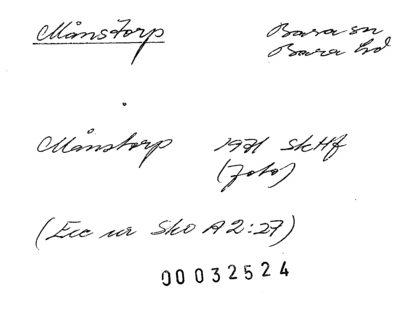 Månstorp
Bara sn
Bara hd
Månstorp 1971 SkHf
(foto)
(Exc ur Sko A 2:27)
00032524